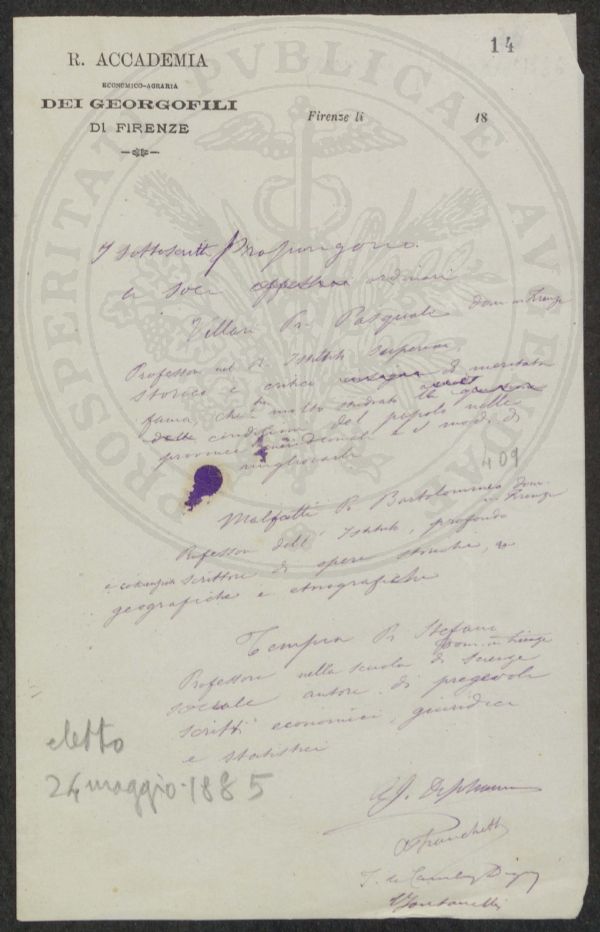 14
R. ACCADEMIA
ECONOMICO-AGRARIA
DEI GEORGOFILI
DI FIRENZE
Firenze li 18
PROSPERITATI PVBLICAE AVGENDAE
I sottoscritti propongono
a soci ordinari
Villari Pr. Pasquale dom. in Firenze
Professore nel R. Istituto Superiore,
storico e critico di meritata
fama, che ha molto studiato le
condizioni del popolo nelle
province meridionali e il modo di
migliorarle
409
Malfatti Pr. Bartolommeo dom. in Firenze
Professore dell' Istituto, profondo
e scrittore di opere storiche,
geografiche e etnografiche
Pr. Stefano
dom. in Firenze
Professore nella scuola di Scienze
sociale autore di pregevoli
scritti economici, giuridici
e statistici
eletto
24 maggio 1885
Franchetti
T. de Cambray Digny
Fontanelli